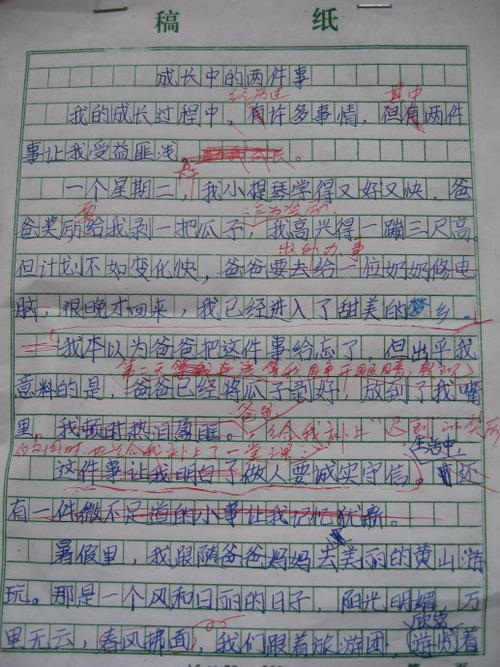 稿 纸
成长中的两件事
经历过
其中
我的成长过程中，有许多事情，但有两件
事让我受益匪浅。
一个星期二，我小提琴学得又好又快，爸
爸奖励给我剥一把瓜子，我高兴得一蹦三尺高。
出外办事
但计划不如变化快，爸爸要去给一位奶奶修电
脑，很晚才回来，我已经进入了甜美的梦乡。
我本以为爸爸把这件事给忘了，但出乎我
第二天
意料的是，爸爸已经将瓜子剥好，放到了我嘴
爸爸
里，我顿时热泪盈眶。
给我补上
的同时也给我补上了一堂课：
生活中，
这件事让我明白了做人要诚实守信。还
有一件微不足道的小事让我记忆犹新。
暑假里，我跟随爸爸妈妈去美丽的黄山游
玩。那是一个风和日丽的日子，阳光明媚，万
欣赏
里无云，春风拂面，我们跟着旅游团，游览着